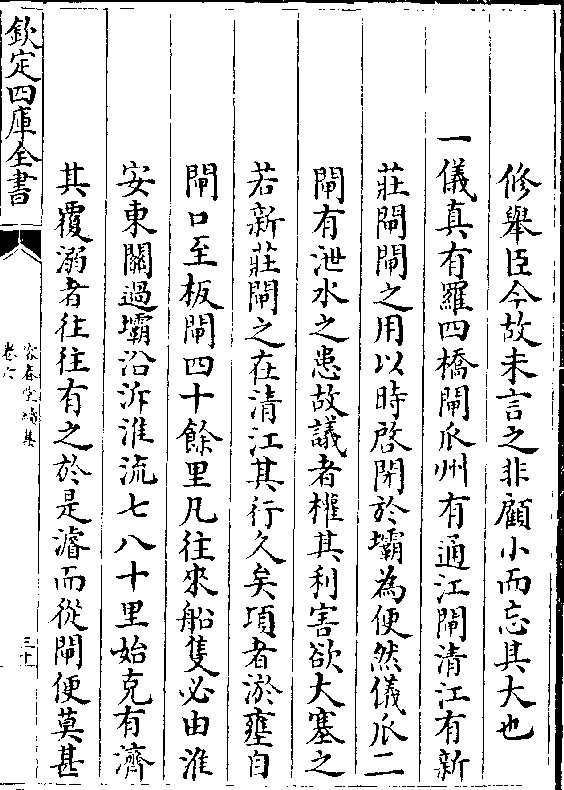 修舉臣今故未言之非顧小而忘其大也
一儀真有羅四橋閘瓜州有通江閘清江有新
莊閘閘之用以時啓閉於壩為便然儀瓜二
閘有泄水之患故議者權其利害欲大塞之
若新莊閘之在清江其行久矣項者淤壅自
閘口至板閘四十餘里凡往來船隻必由淮
安東關過壩沿泝淮流七八十里始克有濟
其覆溺者往往有之於是濬而從閘便莫甚
欽定四庫全書
卷六
三十